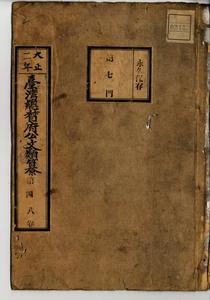 永久保存
第七門
大正二年
臺灣總督府公文類纂
第四八卷